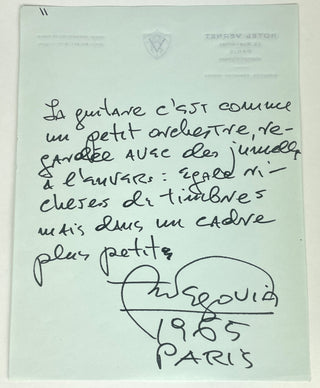 HOTEL VERNET
PARIS
La guitare c'est comme
un petit orchestre, re-
gardée avec des jumelles
à l'envers : egale ri-
chesses de timbres
mais dans un cadre
plus petit.
Segovia
1965
PARIS